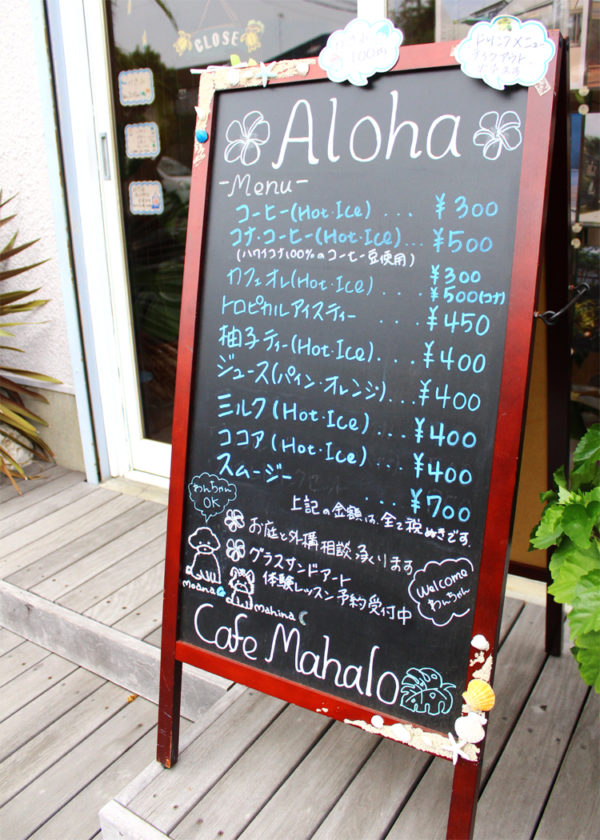 CLOSE
100m
ドリンクメニュー
テイクアウト
できます
Aloha
-Menu-
コーヒー(Hot・Ice)... ¥300
コナ・コーヒー(Hot・Ice)... ¥500
(ハワイコナ100%のコーヒー豆使用)
カフェオレ(Hot・Ice) ¥300
¥500(コナ)
トロピカルアイスティー ... ¥450
柚子ティー(Hot・Ice)... ¥400
ジュース(パイン・オレンジ)... ¥400
ミルク(Hot・Ice)... ¥400
ココア(Hot・Ice)... ¥400
スムージー ... ¥700
上記の金額は全て税ぬきです。
わんちゃん
OK
お庭と外構相談承ります
グラスサンドアート
体験レッスン予約受付中
Welcome
わんちゃん
Moana
Mahina
Cafe Mahalo